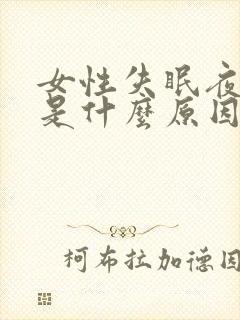 女性失眠夜
是什麼原因
柯布拉加德因